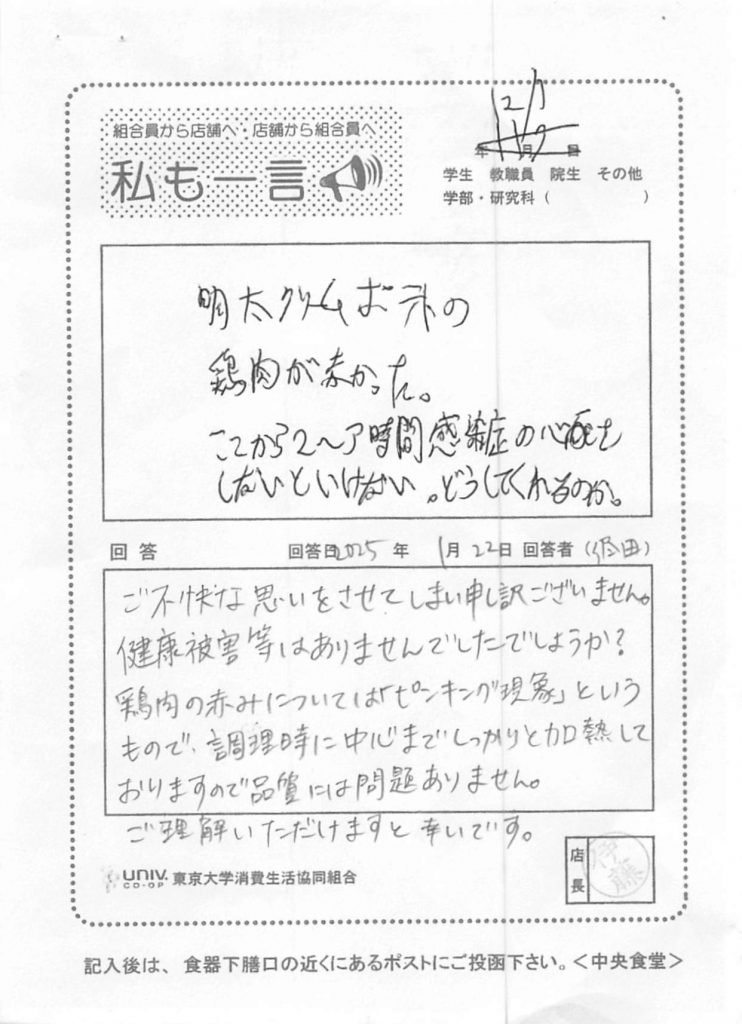 組合員から店舗へ・店舗から組合員へ
私も一言
12/7
年 月 日
学生 教職員 院生 その他
学部・研究科（ ）
明太クリームポテトの
鶏肉が赤かった。
ここから2〜7時間感染症の心配を
しないといけない。どうしてくれるのか。
回答 回答日2025年 1月22日 回答者（ 田）
ご不快な思いをさせてしまい申し訳ございません。
健康被害等はありませんでしたでしょうか？
鶏肉の赤みについては「ピンキング現象」という
もので、調理時に中心までしっかりと加熱して
おりますので品質には問題ありません。
ご理解いただけますと幸いです。
店長
伊藤
UNIV. CO-OP 東京大学消費生活協同組合
記入後は、食器下膳口の近くにあるポストにご投函下さい。＜中央食堂＞